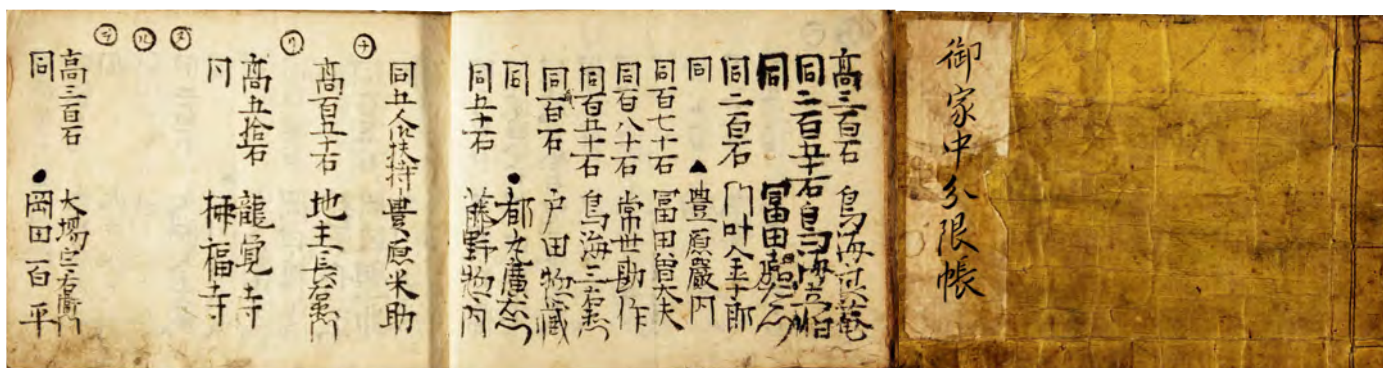 御家中分限帳
高三百石 鳥海
同二百五十石 鳥海
同 冨田
同二百石 門叶金十郎
同 ▲豊原巖内
同百七十石 冨田曽大夫
同百八十石 常世勘作
同百五十石 鳥海三右衛門
同百石 戸田惣蔵
同 ●都丸廣右衛門
同五十石 藤野惣内
チ
同五人扶持 豊原米助
高百五十石 地主長右衛門
リ
高五拾石 龍覚寺
同 福寺
ヌ
ル
ヲ
高三百石 大場宇右衛門
同 ●岡田百平